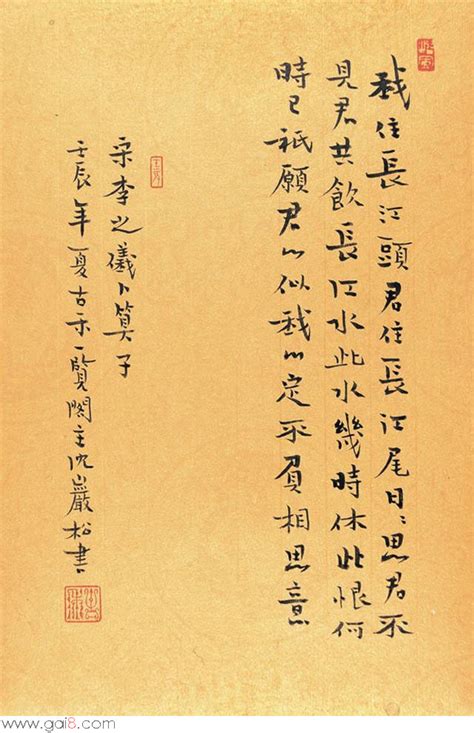 我住長江頭君住長江尾日〻思君不
見君共飲長江水此水幾時休此恨何
時已祇願君心似我心定不負相思意
宋李之儀卜算子
壬辰年夏古禾一覽閣主沈巖松書
www.gai8.com